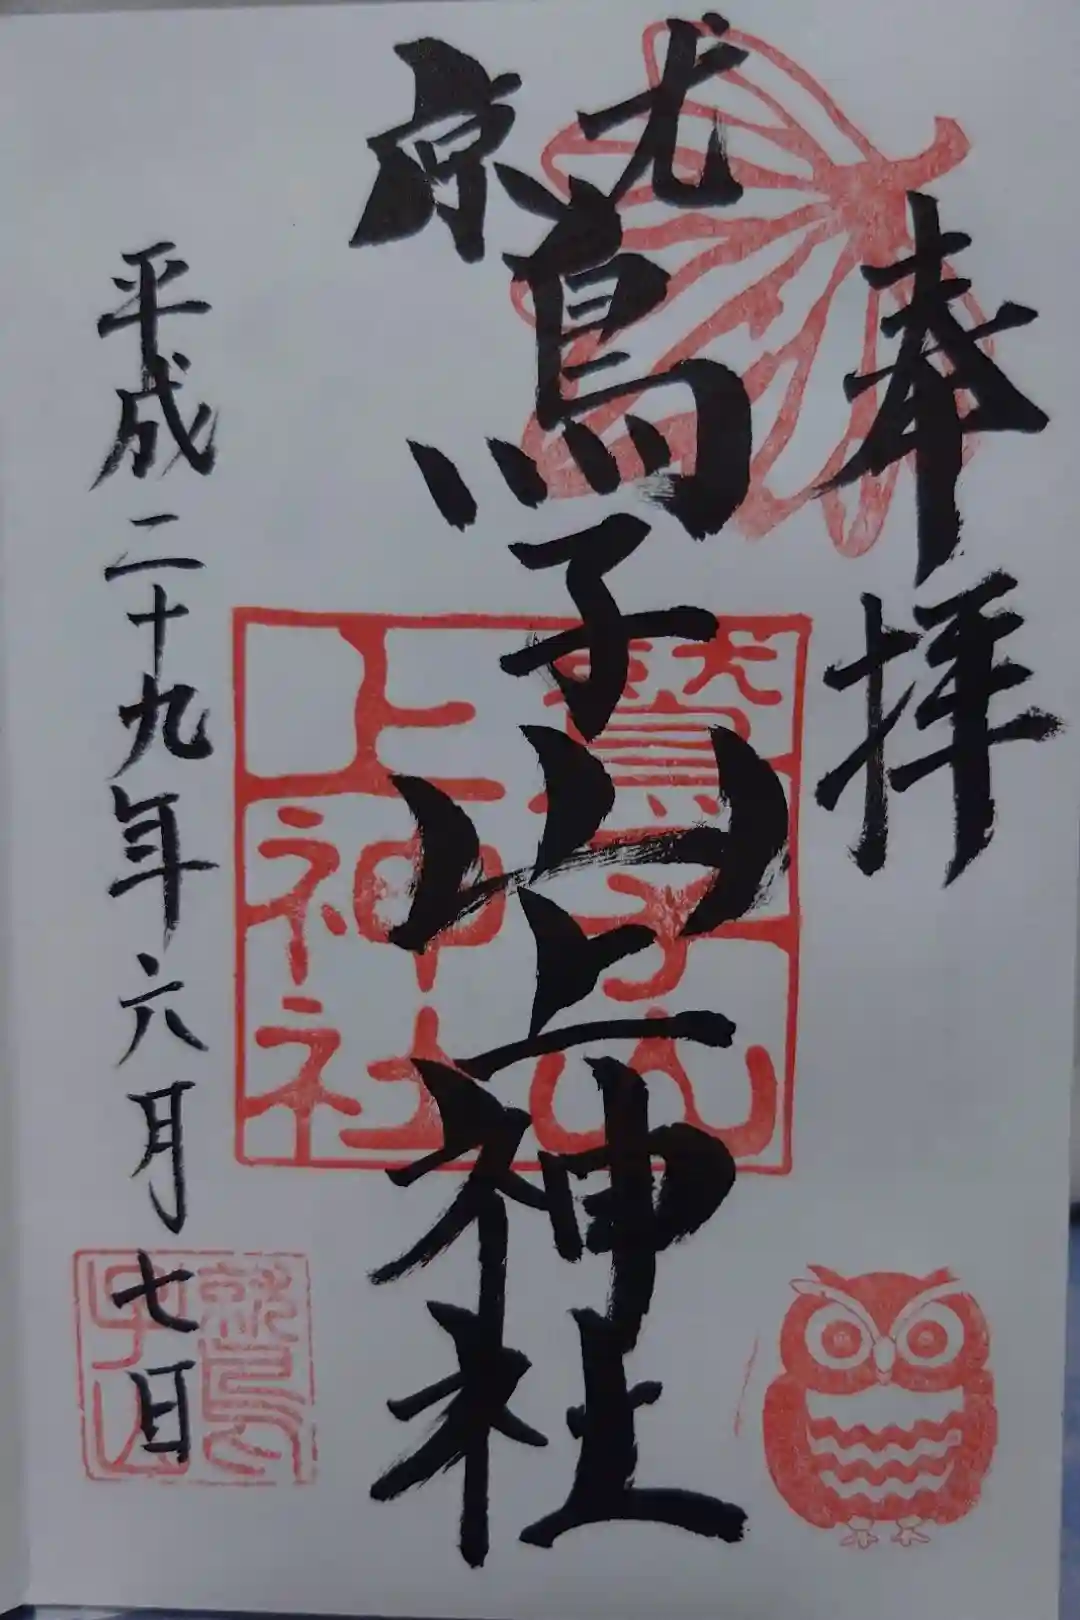 奉拝
鷲子山上神社
平成二十九年六月七日
鷲子山
上神社
鷲子山